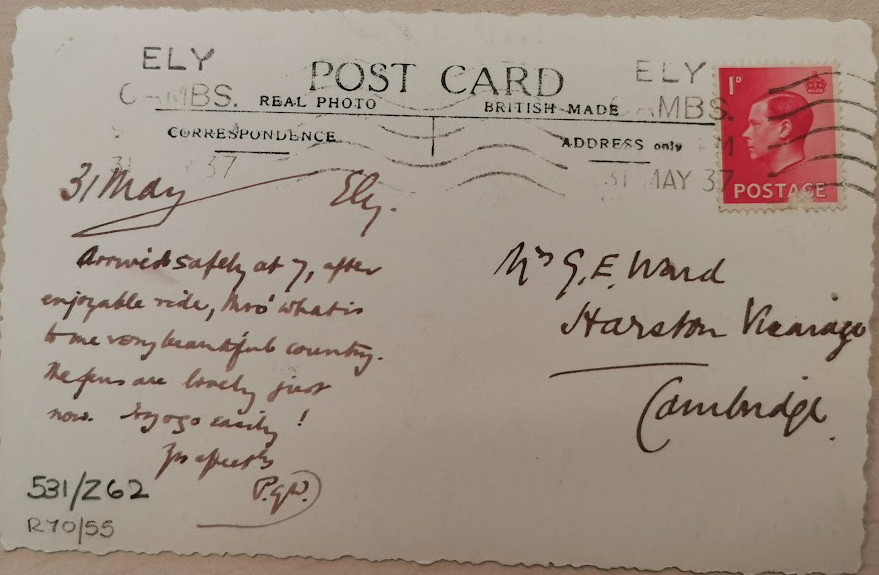 ELY
CAMBS.
31 37
POST CARD
REAL PHOTO BRITISH MADE
CORRESPONDENCE
ADDRESS only
ELY
CAMBS.
PM
31 MAY 37
1D
POSTAGE
31 May Ely.
Arrived safely at 7, after
enjoyable ride, thro' what is
to me very beautiful country.
The fens are lovely just
now. easily!
Yrs affectly
P.G.W.
Mrs G. E. Ward
Harston Vicarage
Cambridge.
531/Z62
R70/55